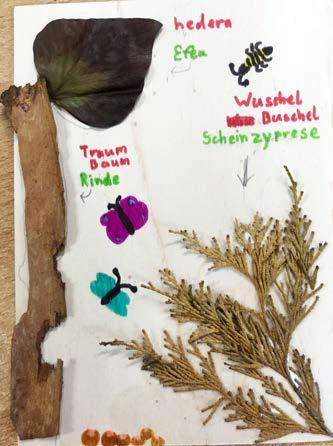 hedera
Efeu
Wuschel
Buschel
Scheinzyprese
Traum
Baum
Rinde